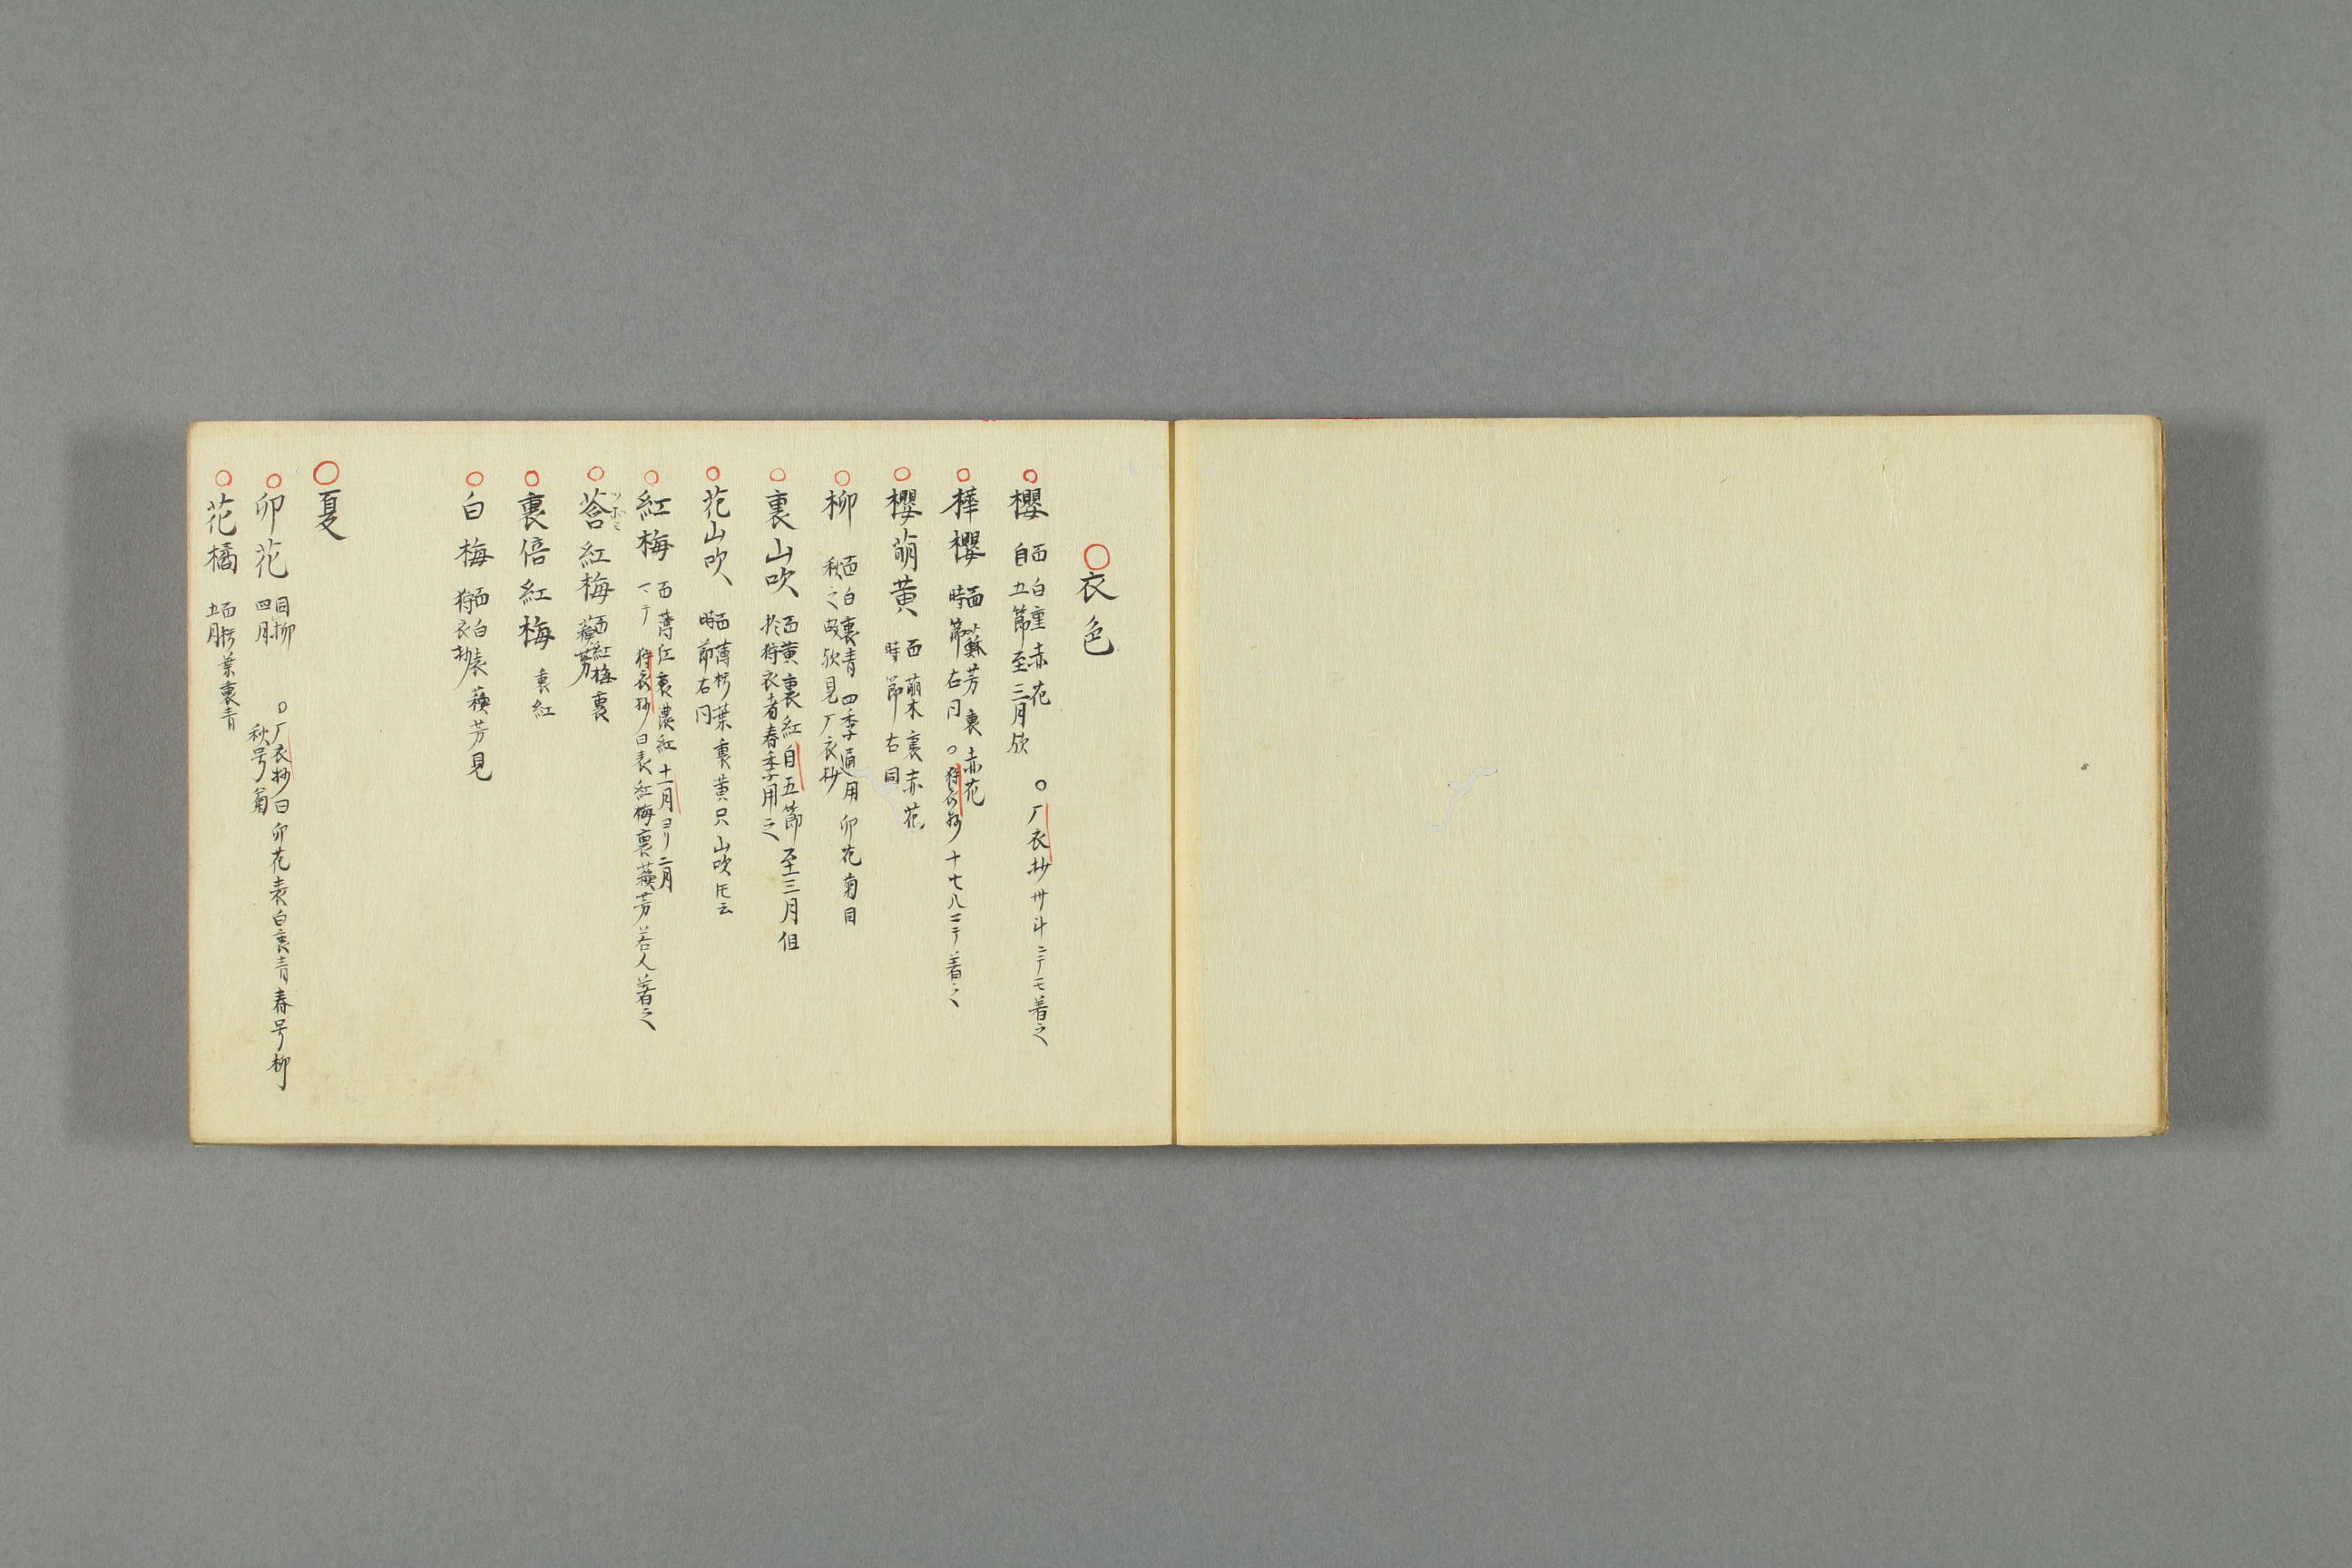 衣色
櫻 面白重赤花
自五節至三月欤 厂衣抄丗斗ニテモ着之
樺櫻 面蘓芳裏赤花
時節右同 狩衣抄十七八ニテ着之
櫻萌黄 面萌木裏赤花
時節右同
柳 面白裏青四季通用卯花菊目
秋之由欤見厂衣抄
裏山吹 面黄裏紅自五節至三月但
於狩衣者春季用之
花山吹 面薄朽葉裏黄只山吹氏云
時節右同
紅梅 面薄紅裏濃紅十一月ヨリ二月
マテ 狩衣抄曰表紅梅裏蘓芳若人着之
莟紅梅 面紅梅裏
蘓芳
ツホミ
裏倍紅梅 裏紅
白梅 面白表蘓芳見
狩衣抄
夏
卯花 同柳
四月 厂衣抄曰卯花表白裏青春号柳
秋号菊
花橘 面朽葉裏青
五月